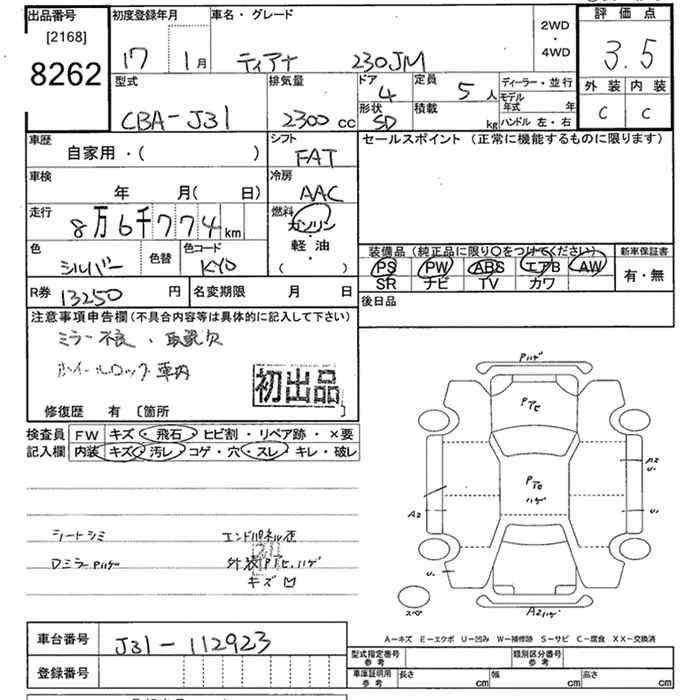 出品番号
[2168]
8262
初度登録年月
17 1月
車名・グレード
ティアナ 230JM
2WD
・
4WD
評価点
3.5
外装 内装
C C
型式
CBA-J31
排気量
2300cc
ドア
4
形状
SD
定員
5人
積載
kg
ディーラー・並行
モデル年式 年
ハンドル 左・右
車歴
自家用・( )
シフト
FAT
セールスポイント (正常に機能するものに限ります)
車検
年 月( 日)
冷房
AAC
走行
8万6千774km
燃料
ガソリン
軽油
・
( )
色
シルバー
色替
色コード
KY0
装備品 (純正品に限り○をつけてください)
PS PW ABS エアB AW
SR ナビ TV カワ
新車保証書
有・無
R券 13250円
名変期限 月 日
後日品
注意事項申告欄(不具合内容等は具体的に記入して下さい)
ミラー不良・取説欠
ホイールロック車内
初出品
修復歴 有 〔箇所
検査員記入欄
FW キズ・飛石・ヒビ割・リペア跡・×要
内装 キズ・汚レ・コゲ・穴・スレ・キレ・破レ
シートシミ
エンドパネル歪
Dミラーハゲ
外装PTヒ、ハゲ
キズ凹
Pハゲ
PTヒ
PTヒ
ハゲ
A2
A2
U1
U1
U1
スペア
A2ハゲ
A-キズ E-エクボ U-凹み W-補修跡 S-サビ C-腐食 XX-交換済
車台番号
J31-112923
登録番号
型式指定番号
参考
類別区分番号
参考
車庫証明用
参考
長さ cm
幅 cm
高さ cm